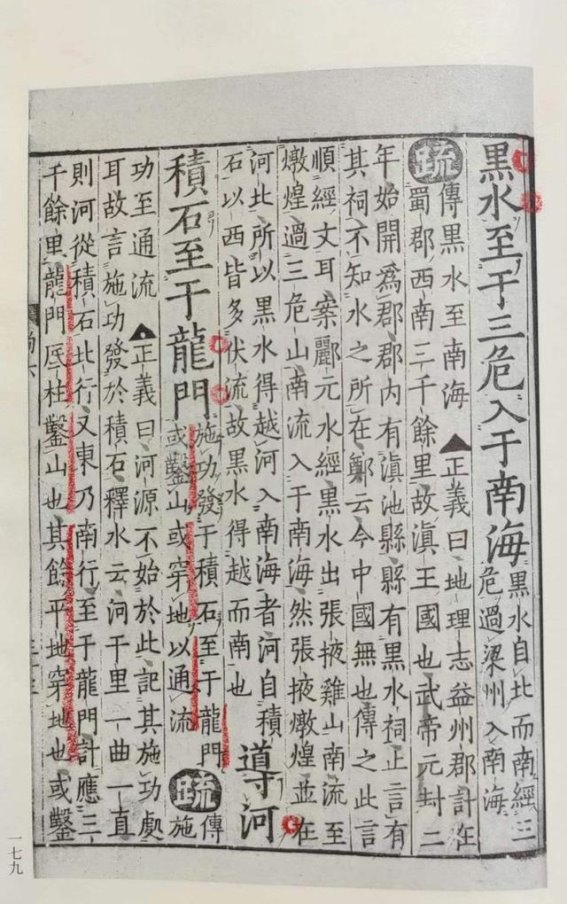 黒水至于三危入于南海
黒水自北而南經三
危過梁州入南海
疏
傳黑水至南海 正義曰地理志益州郡計在
蜀郡西南三千餘里故滇王國也武帝元封二
年始開爲郡郡内有滇池縣縣有黑水祠正言有
其祠不知水之所在鄭云今中國無也傳之此言
順經文耳案酈元水經黑水出張掖雞山南流至
燉煌過三危山南流入于南海然張掖燉煌並在
河北所以黑水得越河入南海者河自積
石以西皆多伏流故黑水得越而南也
導河
積石至于龍門
施功發于積石至于龍門
或鑿山或穿地以通流
疏
傳
施
功至通流 正義曰河源不始於此記其施功處
耳故言施功發於積石釋水云河千里一曲一直
則河從積石北行又東乃南行至于龍門計應三
千餘里龍門厎柱鑿山也其餘平地穿地也或鑿
一七九